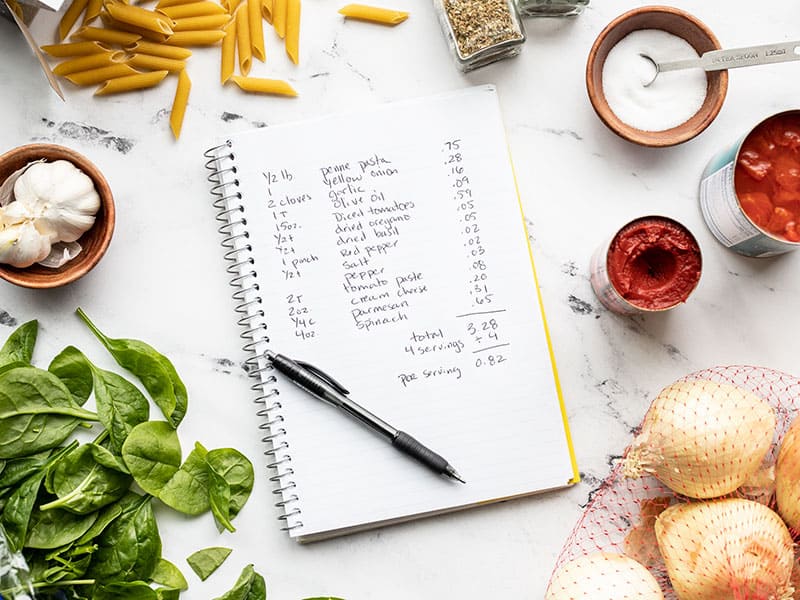 1/2 lb penne pasta .75
1 yellow onion .28
2 cloves garlic .16
1 T olive oil .09
15oz. Diced tomatoes .59
1/2t dried oregano .05
1/2t dried basil .05
1 pinch Red pepper .02
1/2t salt .02
pepper .03
2T tomato paste .08
2oz cream cheese .20
1/4c parmesan .31
4oz spinach .65
total 3.28
4 servings ÷ 4
per serving 0.82